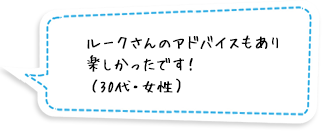 ルークさんのアドバイスもあり
楽しかったです!
(30代・女性)